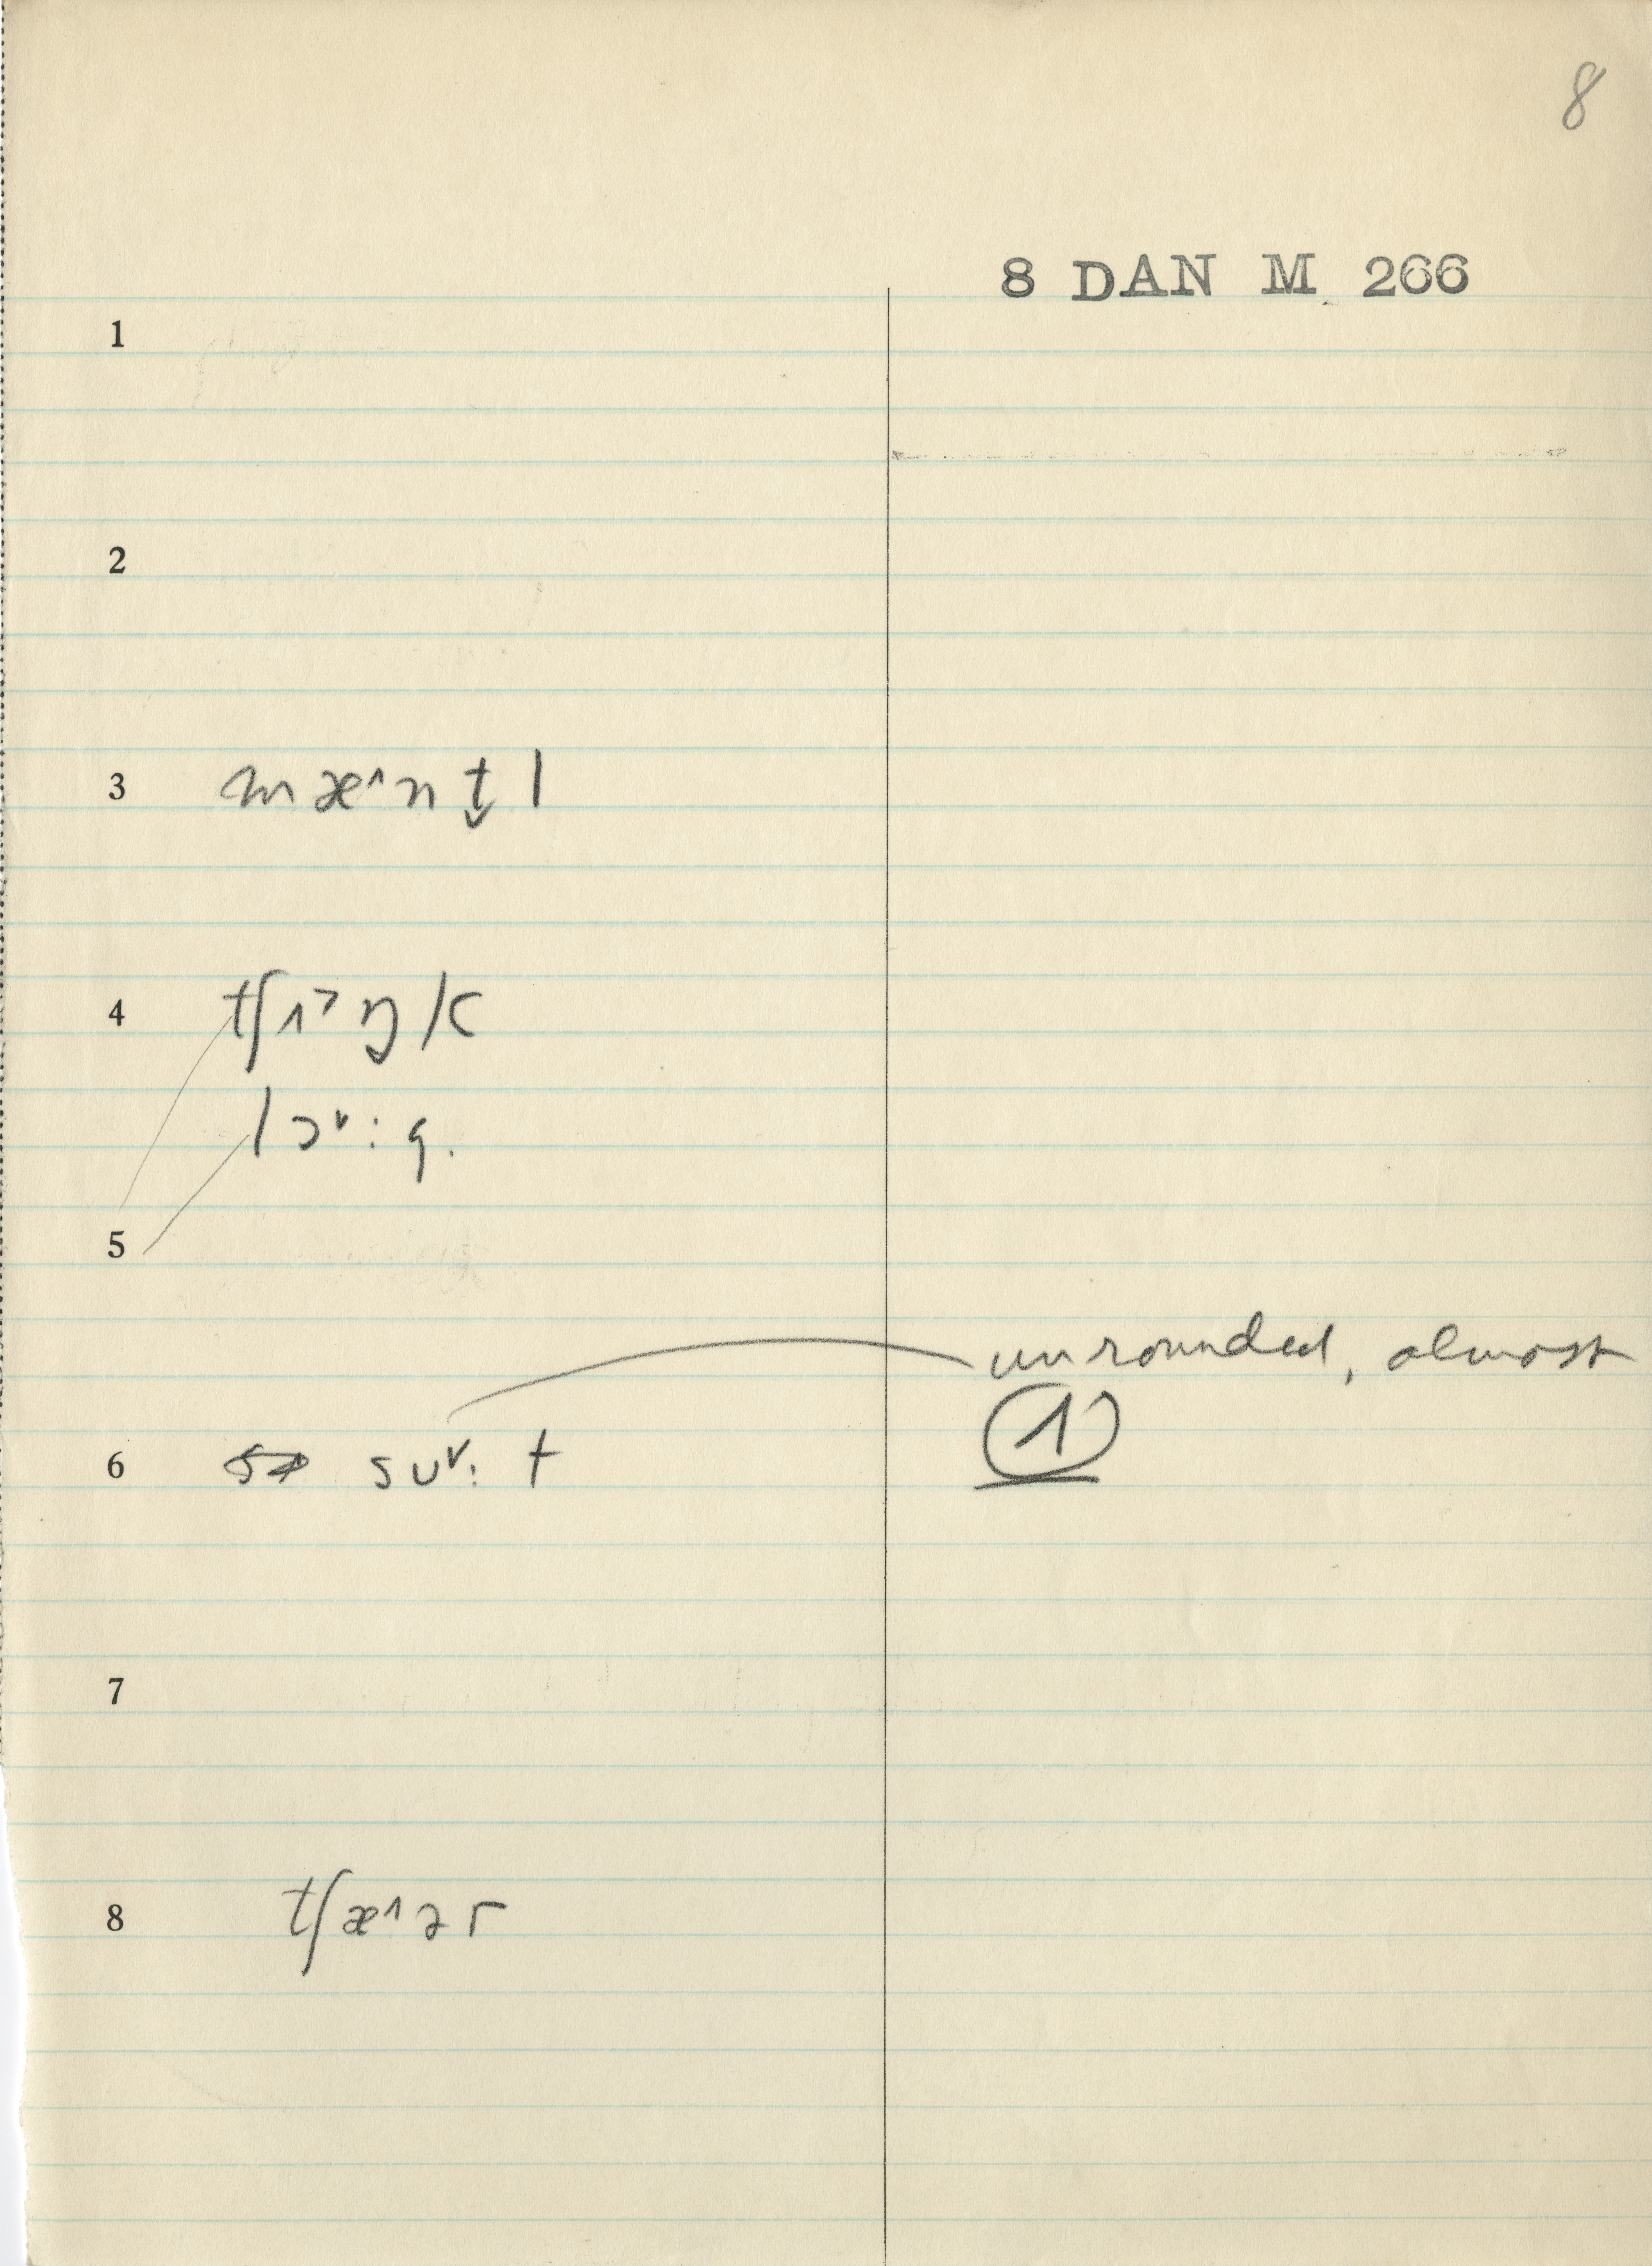 8
8 DAN M 266
1
2
3 mæ˄nt̬l
4 tʃɪ˃ŋk
lɔ˅:g.
5
unrounded, almost
6 su˅:t
7
8 tʃæ˄ər